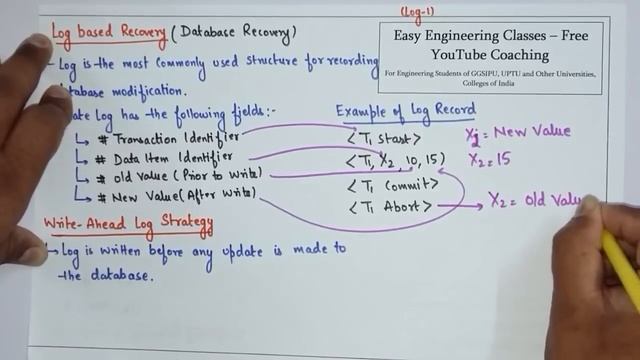 (Log-1)
Log based Recovery (Database Recovery)
Easy Engineering Classes – Free
YouTube Coaching
For Engineering Students of GGSIPU, UPTU and Other Universities,
Colleges of India
Log is the most commonly used structure for recording
database modification.
Log has the following fields:-
# Transaction Identifier
# Data Item Identifier
# Old value (Prior to Write)
# New Value (After Write)
Example of Log Record
<T1 Start>
<T1, X2, 10, 15>
<T1 Commit>
<T1 Abort>
X2 = New Value
X2 = 15
X2 = Old Valu
Write-Ahead Log Strategy
Log is written before any update is made to
the database.